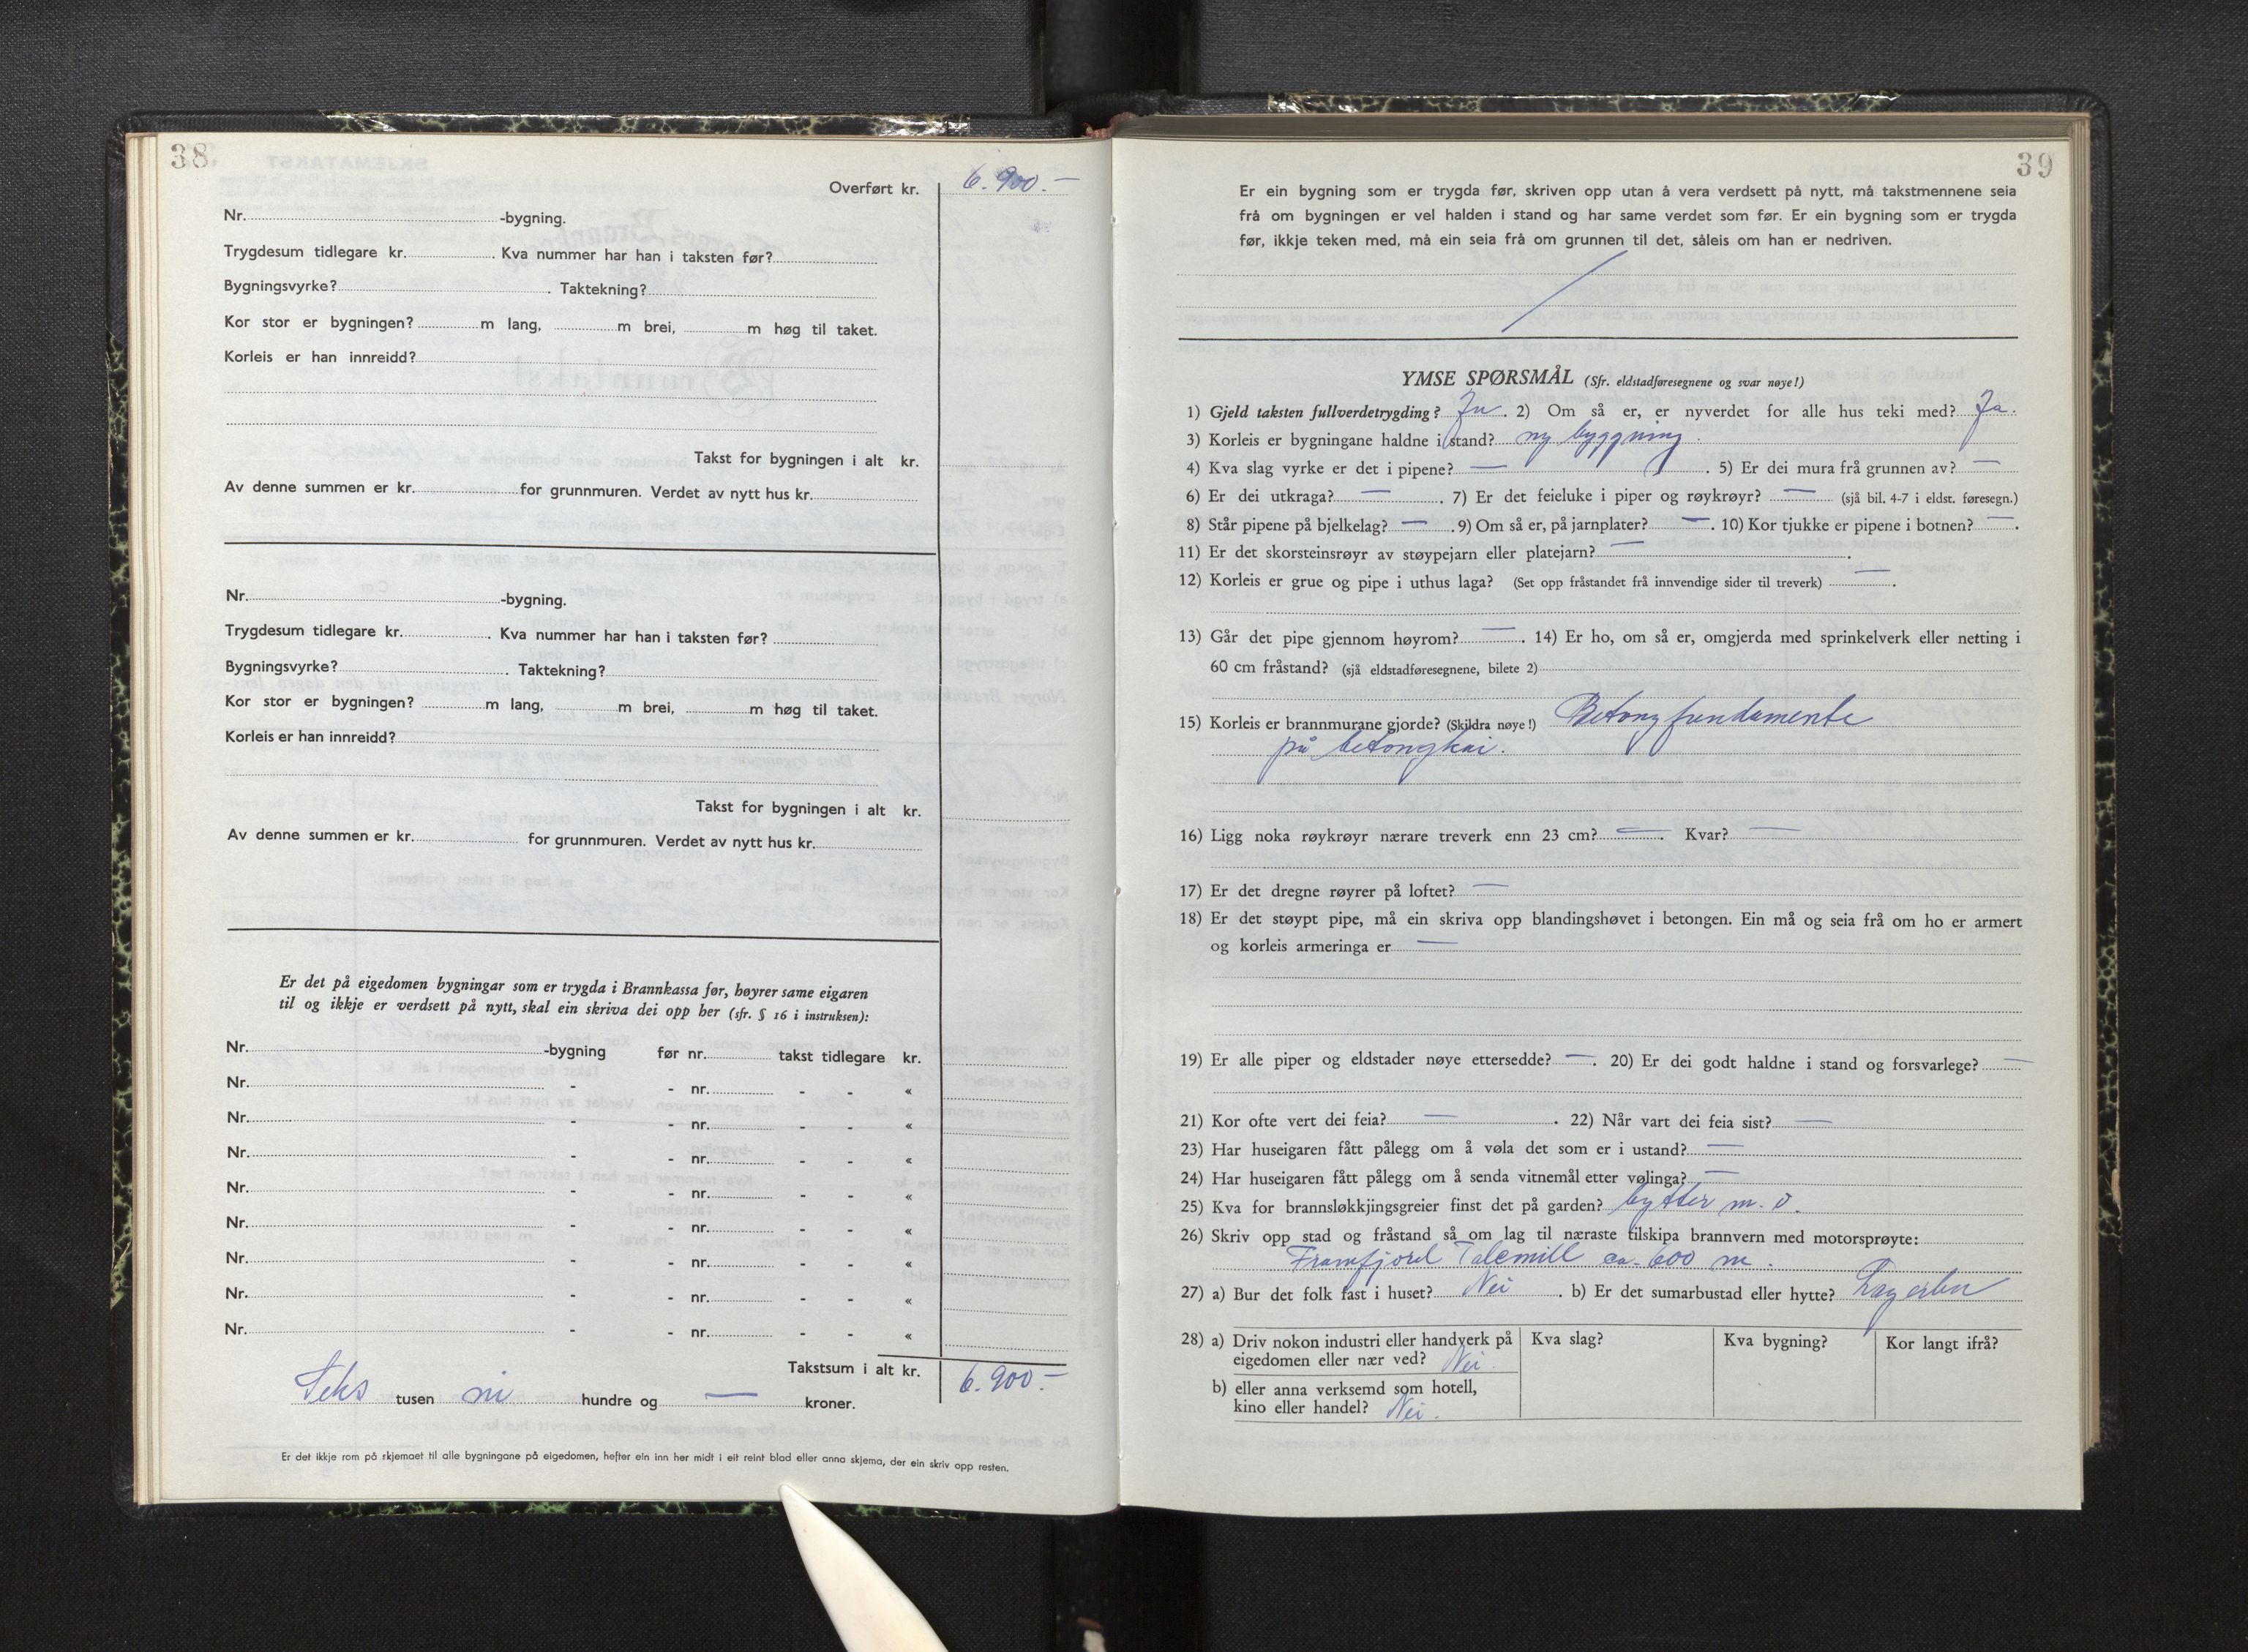 38
Overført kr. 6.900.-
Nr. -bygning.
Trygdesum tidlegare kr. . Kva nummer har han i taksten før?
Bygningsvyrke? . Taktekning?
Kor stor er bygningen? m lang, m brei, m høg til taket.
Korleis er han innreidd?
Takst for bygningen i alt kr.
Av denne summen er kr. for grunnmuren. Verdet av nytt hus kr.
Nr. -bygning.
Trygdesum tidlegare kr. . Kva nummer har han i taksten før?
Bygningsvyrke? . Taktekning?
Kor stor er bygningen? m lang, m brei, m høg til taket.
Korleis er han innreidd?
Takst for bygningen i alt kr.
Av denne summen er kr. for grunnmuren. Verdet av nytt hus kr.
Er det på eigedomen bygningar som er trygda i Brannkassa før, høyrer same eigaren
til og ikkje er verdsett på nytt, skal ein skriva dei opp her (sfr. § 16 i instruksen):
Nr. -bygning før nr. takst tidlegare kr.
Nr. - - nr. - - «
Nr. - - nr. - - «
Nr. - - nr. - - «
Nr. - - nr. - - «
Nr. - - nr. - - «
Nr. - - nr. - - «
Nr. - - nr. - - «
Nr. - - nr. - - «
Takstsum i alt kr. 6.900.-
Seks tusen ni hundre og — kroner.
Er det ikkje rom på skjemaet til alle bygningane på eigedomen, hefter ein inn her midt i eit reint blad eller anna skjema, der ein skriv opp resten.
39
Er ein bygning som er trygda før, skriven opp utan å vera verdsett på nytt, må takstmennene seia
frå om bygningen er vel halden i stand og har same verdet som før. Er ein bygning som er trygda
før, ikkje teken med, må ein seia frå om grunnen til det, såleis om han er nedriven.
YMSE SPØRSMÅL (Sfr. eldstadføresegnene og svar nøye!)
1) Gjeld taksten fullverdetrygding? Ja. 2) Om så er, er nyverdet for alle hus teki med? Ja.
3) Korleis er bygningane haldne i stand? ny byggning.
4) Kva slag vyrke er det i pipene? — . 5) Er dei mura frå grunnen av? —
6) Er dei utkraga? — . 7) Er det feieluke i piper og røykrøyr? — (sjå bil. 4-7 i eldst. føresegn.)
8) Står pipene på bjelkelag? — . 9) Om så er, på jarnplater? — . 10) Kor tjukke er pipene i botnen? — .
11) Er det skorsteinsrøyr av støypejarn eller platejarn? — .
12) Korleis er grue og pipe i uthus laga? (Set opp fråstandet frå innvendige sider til treverk) — .
13) Går det pipe gjennom høyrom? — . 14) Er ho, om så er, omgjerda med sprinkelverk eller netting i
60 cm fråstand? (sjå eldstadføresegnene, bilete 2)
15) Korleis er brannmurane gjorde? (Skildra nøye!) Betongfundamente
på betongkai.
16) Ligg noka røykrøyr nærare treverk enn 23 cm? — . Kvar? —
17) Er det dregne røyrer på loftet? —
18) Er det støypt pipe, må ein skriva opp blandingshøvet i betongen. Ein må og seia frå om ho er armert
og korleis armeringa er —
19) Er alle piper og eldstader nøye ettersedde? — . 20) Er dei godt haldne i stand og forsvarlege? —
21) Kor ofte vert dei feia? — . 22) Når vart dei feia sist? —
23) Har huseigaren fått pålegg om å vøla det som er i ustand? —
24) Har huseigaren fått pålegg om å senda vitnemål etter vølinga? —
25) Kva for brannsløkkjingsgreier finst det på garden? bytter m. v.
26) Skriv opp stad og fråstand så om lag til næraste tilskipa brannvern med motorsprøyte:
Framfjord Talcmill ca. 600 m.
27) a) Bur det folk fast i huset? Nei . b) Er det sumarbustad eller hytte?
28) a) Driv nokon industri eller handverk på eigedomen eller nær ved? Nei.
Kva slag? Kva bygning? Kor langt ifrå?
b) eller anna verksemd som hotell,
kino eller handel? Nei.